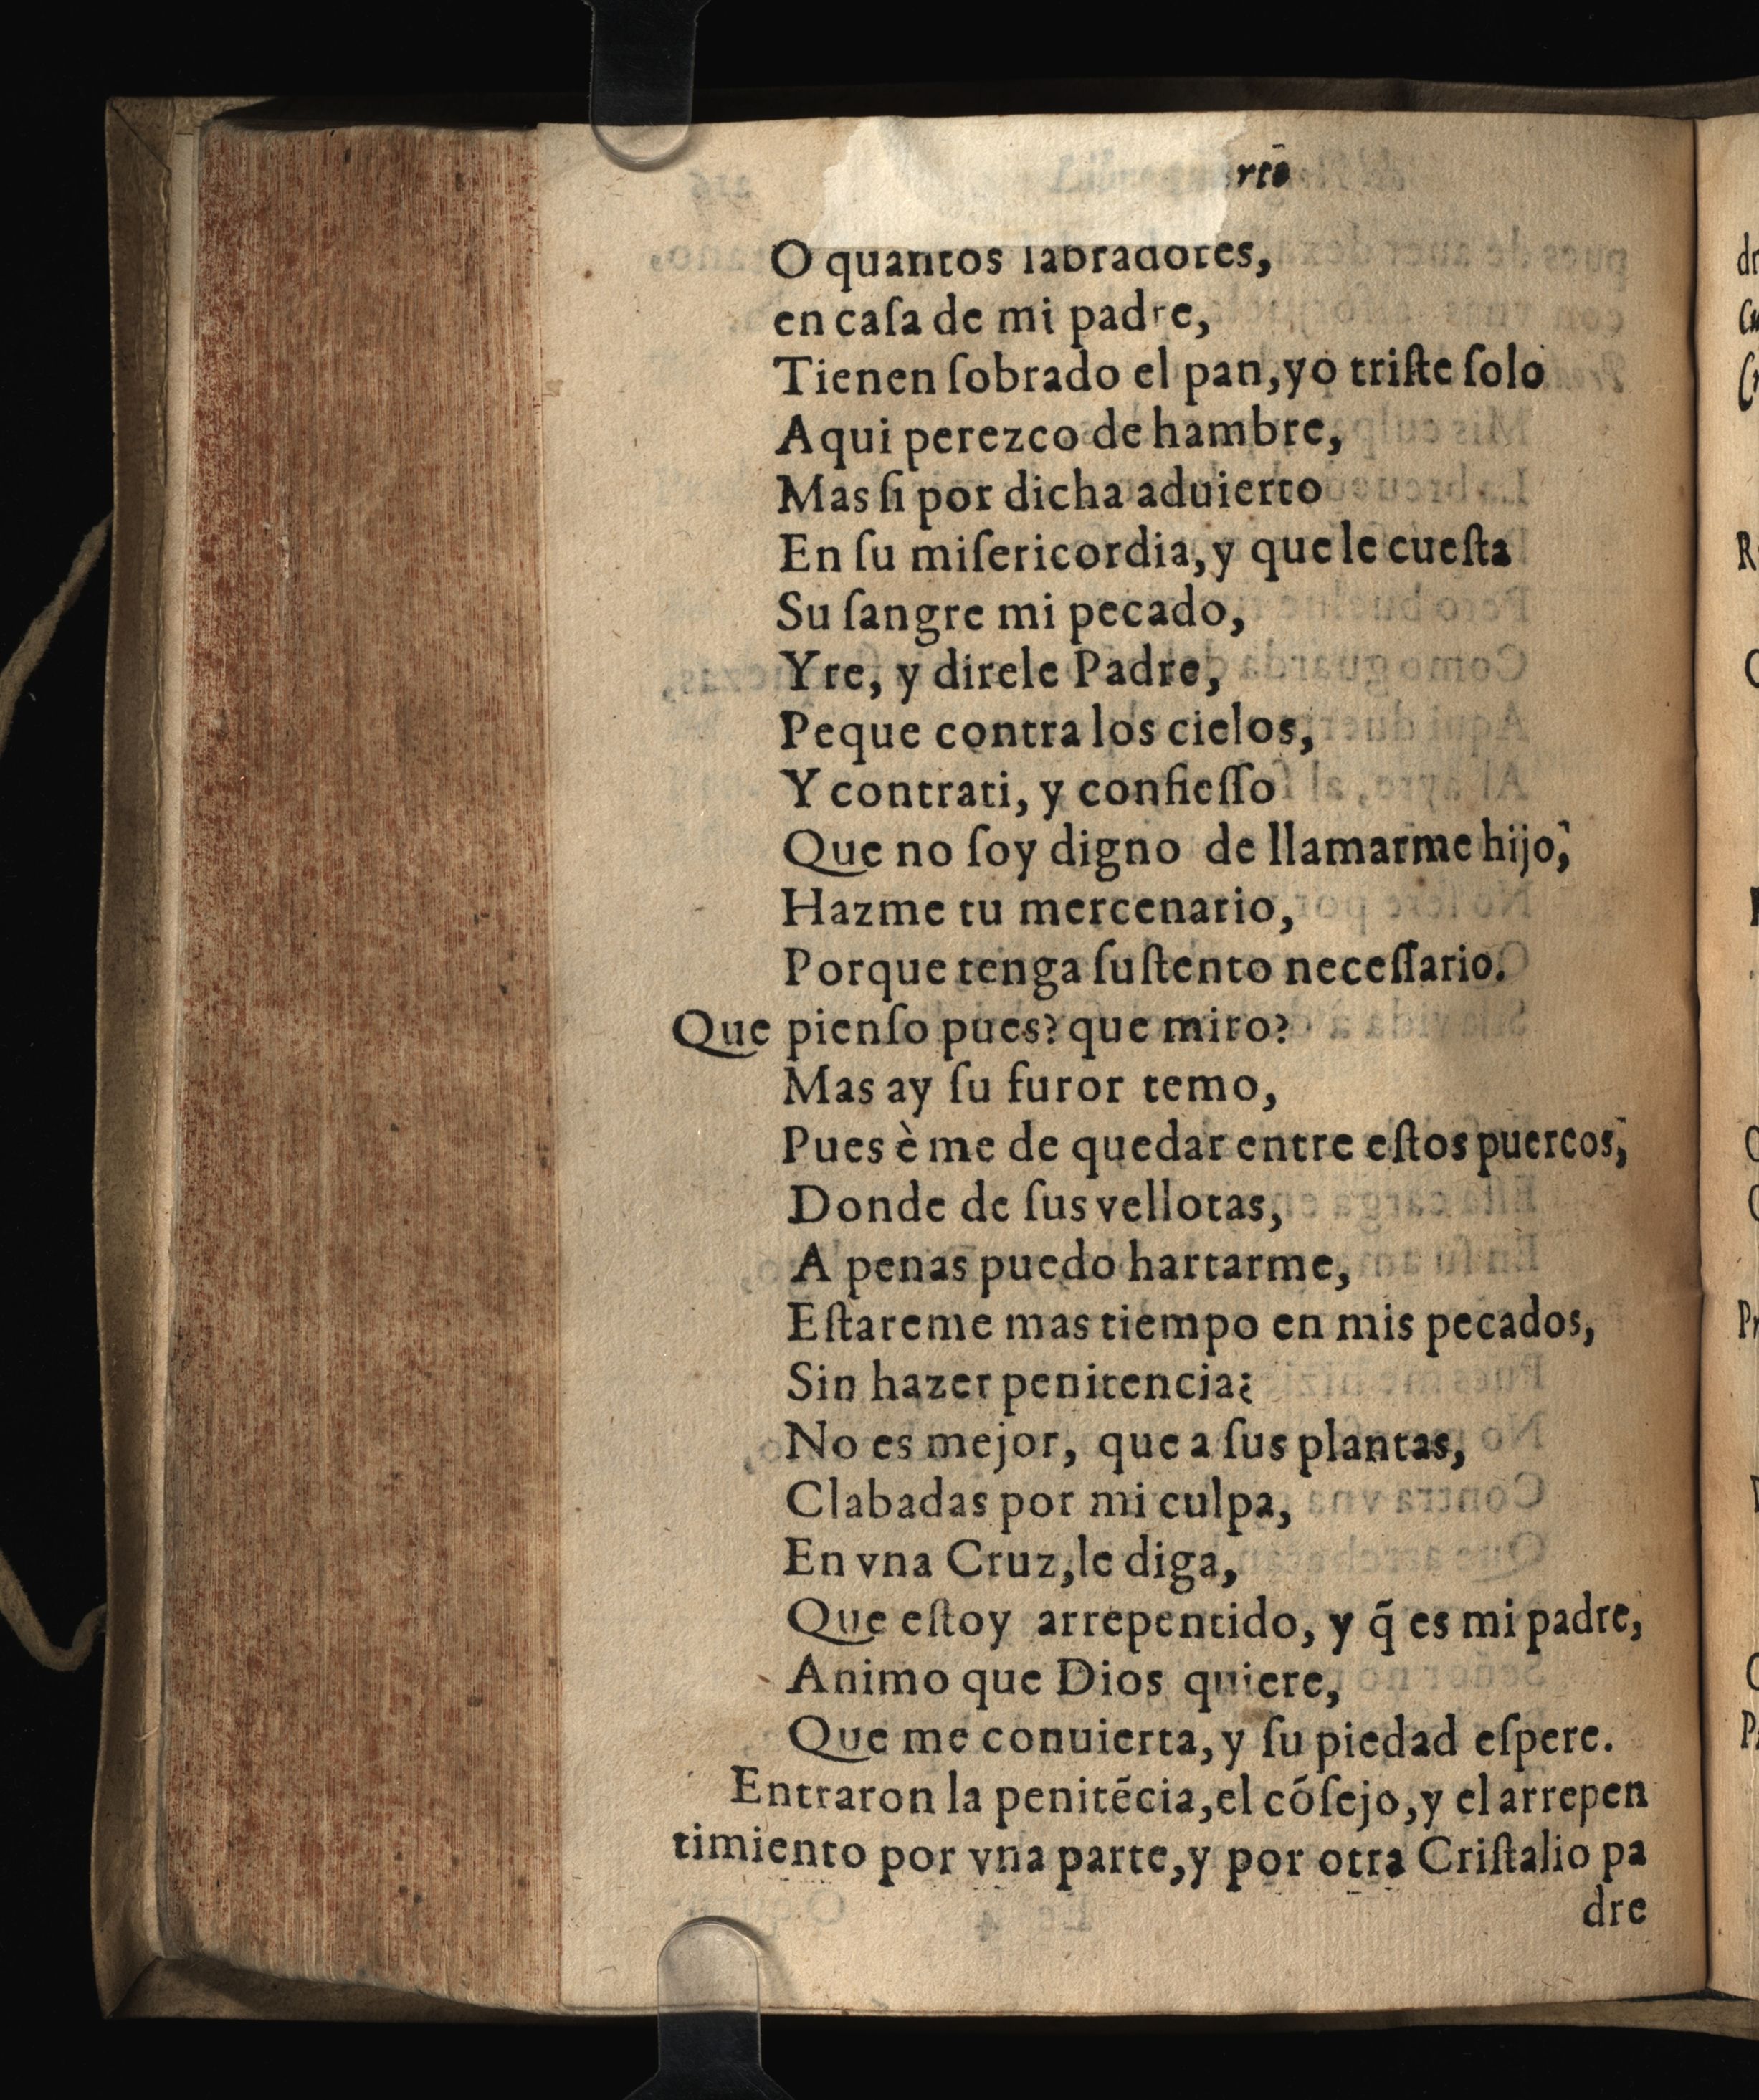 O quantos labradores,
en caſa de mi padre,
Tienen ſobrado el pan,yo triſte ſolo
Aqui perezco de hambre,
Mas ſi por dicha aduierto
En ſu miſericordia,y que le cueſta
Su ſangre mi pecado,
Yre, y direle Padre,
Peque contra los cielos,
Y contrati, y confieſſo
Que no ſoy digno de llamarme hijo,
Hazme tu mercenario,
Porque tenga ſuſtento neceſſario.
Que pienſo pues? que miro?
Mas ay ſu furor temo,
Pues è me de quedar entre eſtos puercos,
Donde de ſus vellotas,
A penas puedo hartarme,
Eſtareme mas tiempo en mis pecados,
Sin hazer penitencia?
No es mejor, que a ſus plantas,
Clabadas por mi culpa,
En vna Cruz,le diga,
Que eſtoy arrepentido, y q̃ es mi padre,
Animo que Dios quiere,
Que me conuierta,y ſu piedad eſpere.
Entraron la penitẽcia,el cõſejo,y el arrepen
timiento por vna parte,y por otra Criſtalio pa
dre